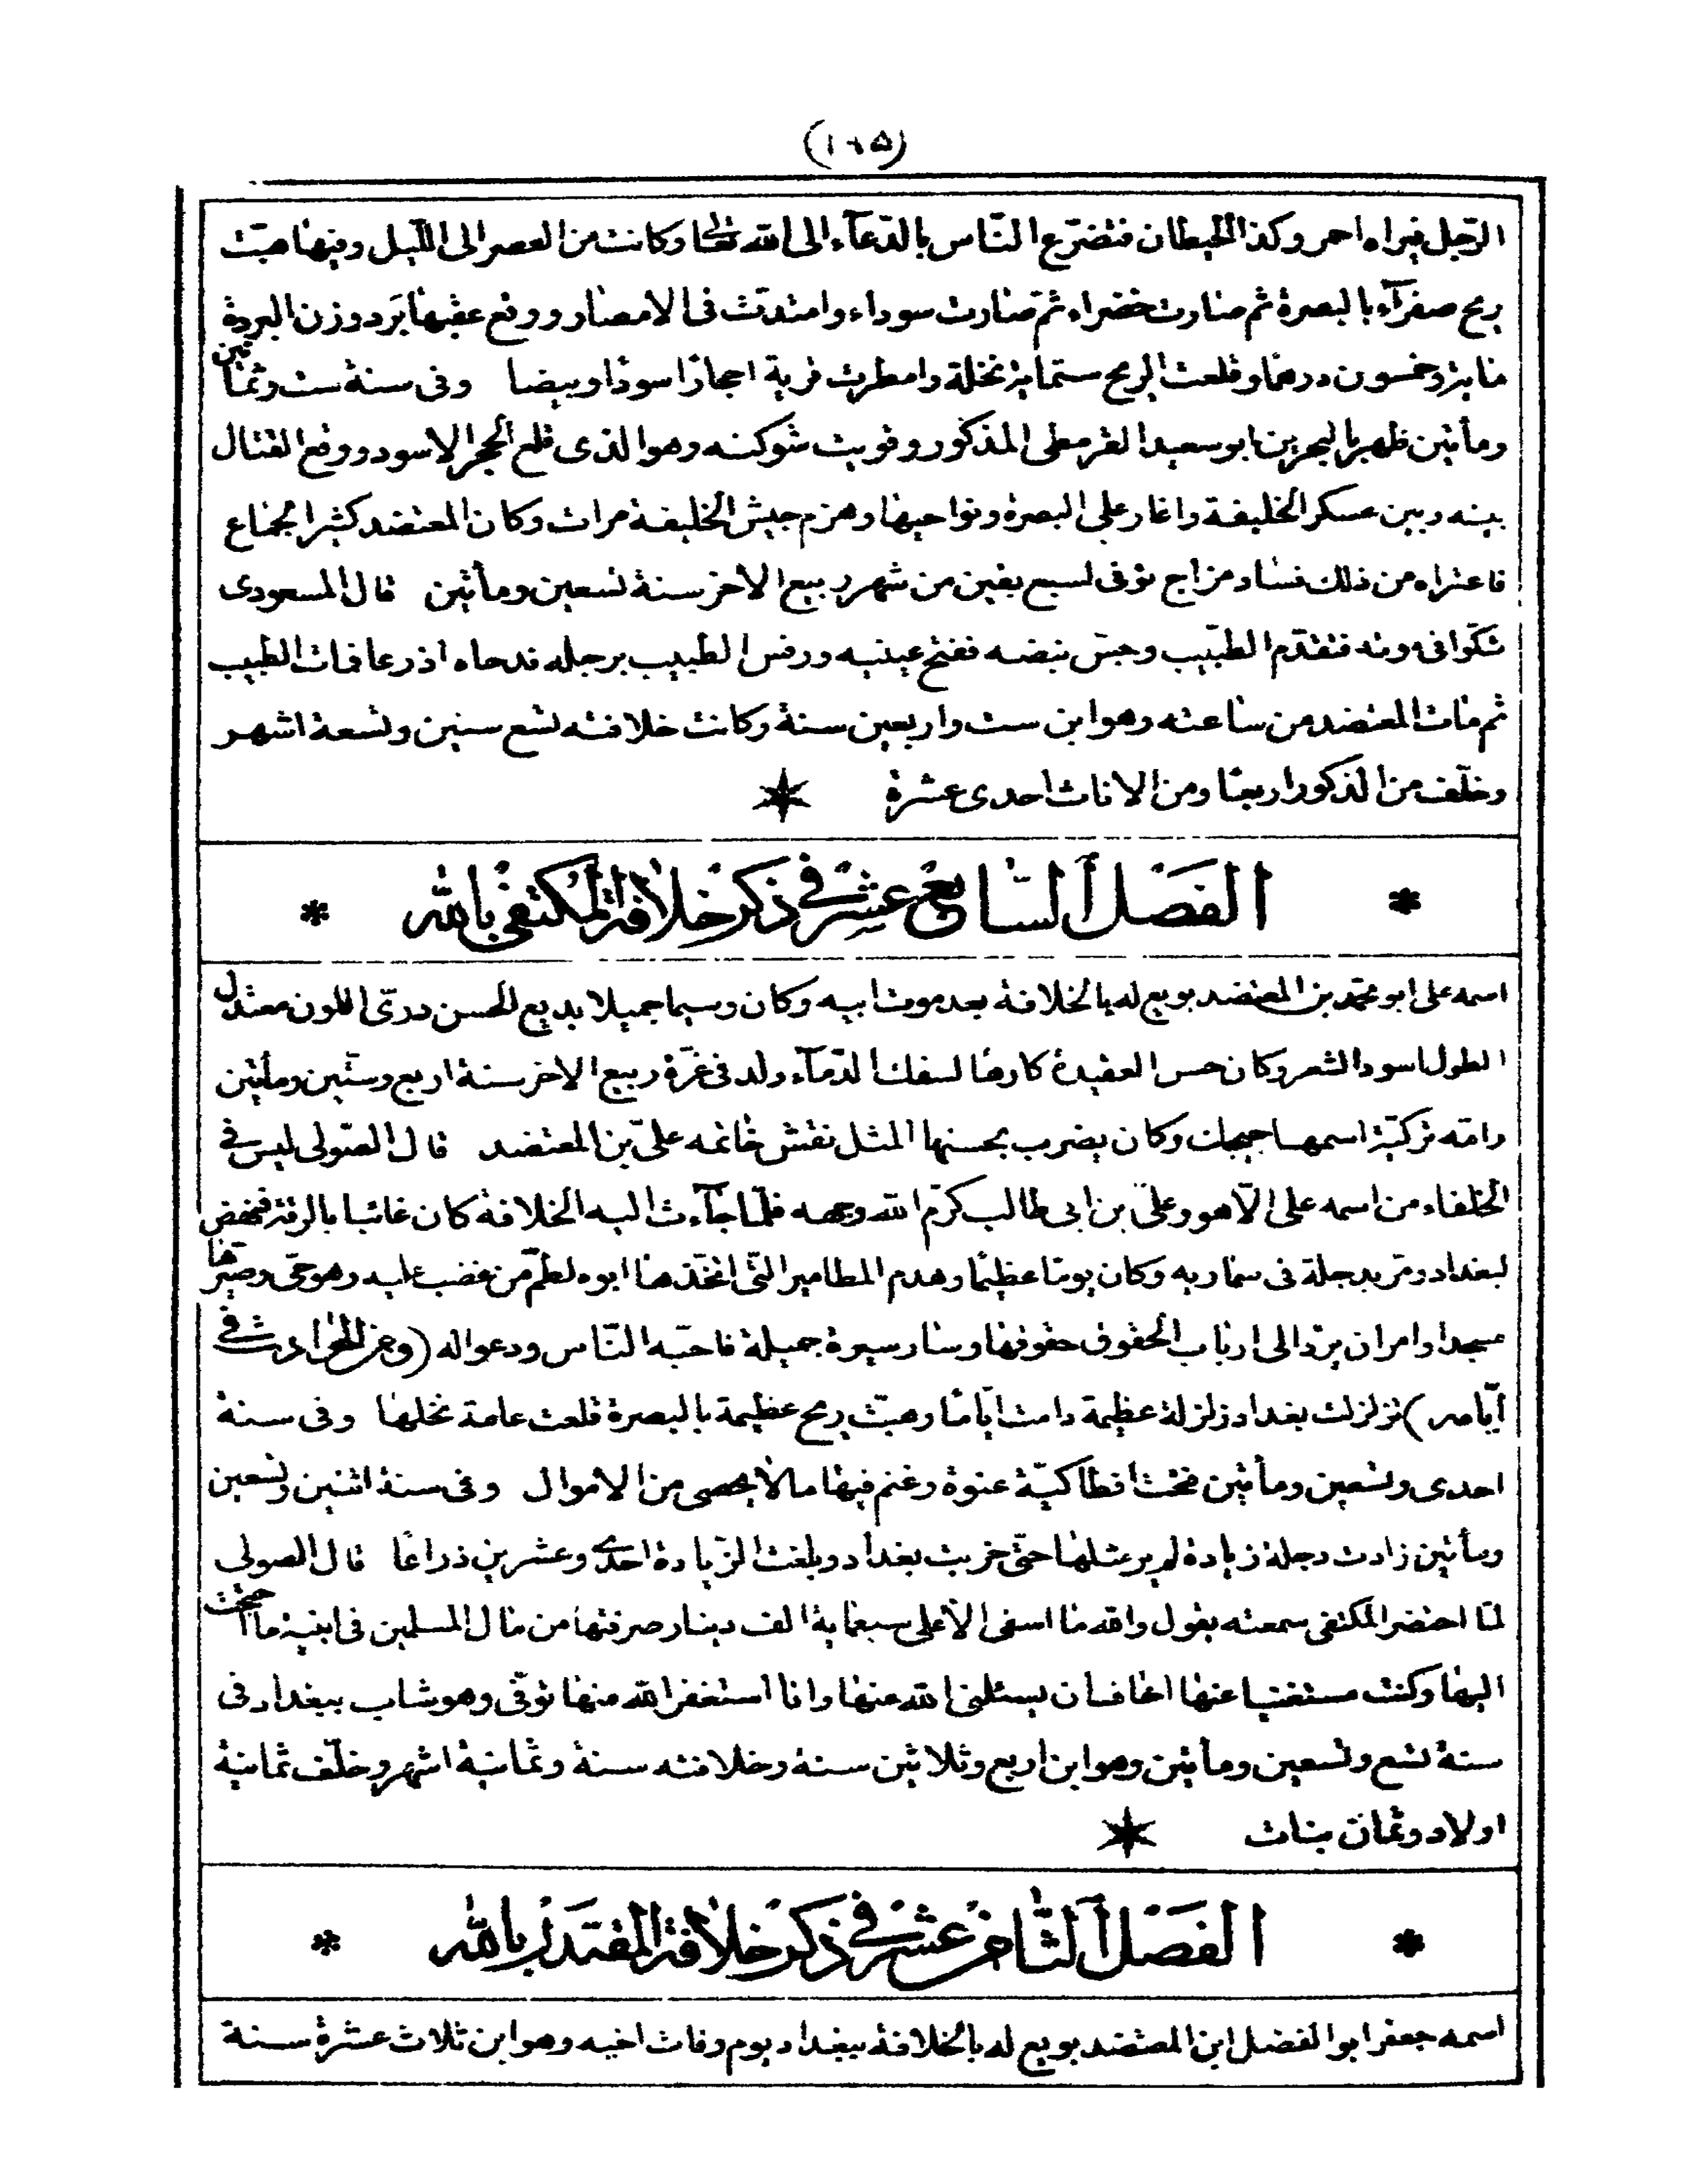 (١٦٥)
الرّجل فيراه احمر وكذا الحيطان فتضرّع النّاس بالدّعآء الى الله تعالى وكانت من العصر الى اللّيل وفيها هبّت
ريح صفرآء بالبصرة ثم صارت خضراء ثمّ صارت سوداء وامتدّت فى الامصار ووقع عقبها بَرَد وزن البردة
مايةوخمسون درهما وقلعت الريح ستماية نخلة وامطرت قرية احجارًا سودًا وبيضا وفى سنة ست وثمانين
ومأتين ظهر بالبحرين ابو سعيد القرمطى المذكور وقويت شوكته وهو الذى قلع الحجر الاسود ووقع القتال
بينه وبين عسكر الخليفة واغار على البصرة ونواحيها وهزم جيش الخليفة مرات وكان المعتضد كثير الجماع
فاعتراه من ذلك فساد مزاج توفى لسبع بقين من شهر ربيع الاخر سنة تسعين ومأتين قال المسعودى
شكّوا فى موته فتقدّم الطّبيب وجسّ نبضه ففتح عينيه ورفس الطبيب برجله فدحاه اذرعا فمات الطبيب
ثم مات المعتضد من ساعته وهو ابن ست واربعين سنة وكانت خلافته تسع سنين وتسعة اشهر
وخلّف من الذكور اربعًا ومن الاناث احدى عشرة
* الفصل السّابع عشر فى ذكر خلافة المكتفى بالله *
اسمه على ابو محمّد بن المعتضد بويع له بالخلافة بعد موت ابيه وكان وسيما جميلا بديع الحسن درىّ اللون معتدل
الطول اسود الشعر وكان حسن العقيدة كارهًا لسفك الدّمآء ولد فى غرّة ربيع الاخر سنة اربع وستّين ومأتين
وامّه تركيّة اسمها جيجك وكان يضرب بحسنها المثل نقش خاتمه علىّ بن المعتضد قال الصّولى ليس فى
الخلفاء من اسمه على الّا هو وعلىّ بن ابى طالب كرّم الله وجهه فلمّا جآءت اليه الخلافة كان غائبا بالرقة فنهض
لبغداد ومرّ بدجلة فى سماريه وكان يومًا عظيمًا وهدم المطامير التّى اتخذها ابوه لطمّ من غضب عليه وهو حىّ وصيّرها
مسجدا وامر ان يردّ الى ارباب الحقوق حقوقها وسار سيرة جميلة فاحبّه النّاس ودعوا له (ومن الحوادث فى
أيّامه) تزلزلت بغداد زلزلة عظيمة دامت ايّامًا وهبّت ريح عظيمة بالبصرة قلعت عامة نخلها وفى سنة
احدى وتسعين ومأتين فتحت انطاكيّة عنوة وغنم فيها مالا يحصى من الاموال وفى سنة اثنين وتسعين
ومأتين زادت دجلة زيادة لم ير مثلها حتّى خربت بغداد وبلغت الزّيادة احدى وعشرين ذراعًا قال الصولى
لمّا احتضر المكتفى سمعته يقول والله ما اسفى الّا على سبعماية الف دينار صرفتها من مال المسلمين فى ابنية ما احتجت
اليها وكنت مستغنيا عنها اخاف ان يسئلنى الله عنها وانا استغفر الله منها توفّى وهو شاب ببغداد فى
سنة تسع وتسعين ومأتين وهو ابن اربع وثلاثين سنة وخلافته سنة وثمانية اشهر وخلّف ثمانية
اولاد وثمان بنات
* الفصل الثّامن عشر فى ذكر خلافة المقتدر بالله *
اسمه جعفر ابو الفضل ابن المعتضد بويع له بالخلافة ببغداد يوم وفاث اخيه وهو ابن ثلاث عشرة سنة